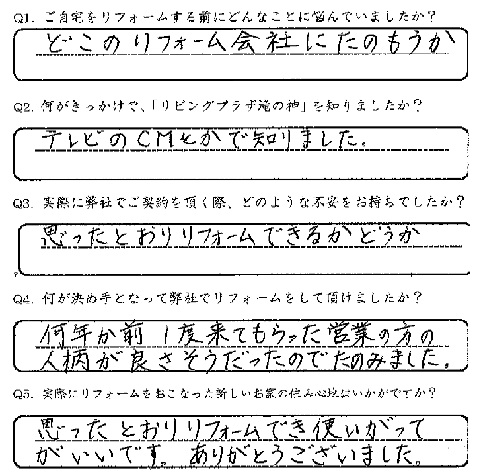 Q1. ご自宅をリフォームする前にどんなことに悩んでいましたか？
どこのリフォーム会社にたのもうか
Q2. 何がきっかけで、「リビングプラザ滝の神」を知りましたか？
テレビのCMとかで知りました。
Q3. 実際に弊社でご契約を頂く際、どのような不安をお持ちでしたか？
思ったとおりリフォームできるかどうか
Q4. 何が決め手となって弊社でリフォームをして頂けましたか？
何年か前1度来てもらった営業の方の
人柄が良さそうだったのでたのみました。
Q5. 実際にリフォームをおこなった新しいお家の住み心地はいかがですか？
思ったとおりリフォームでき使いがって
がいいです。ありがとうございました。